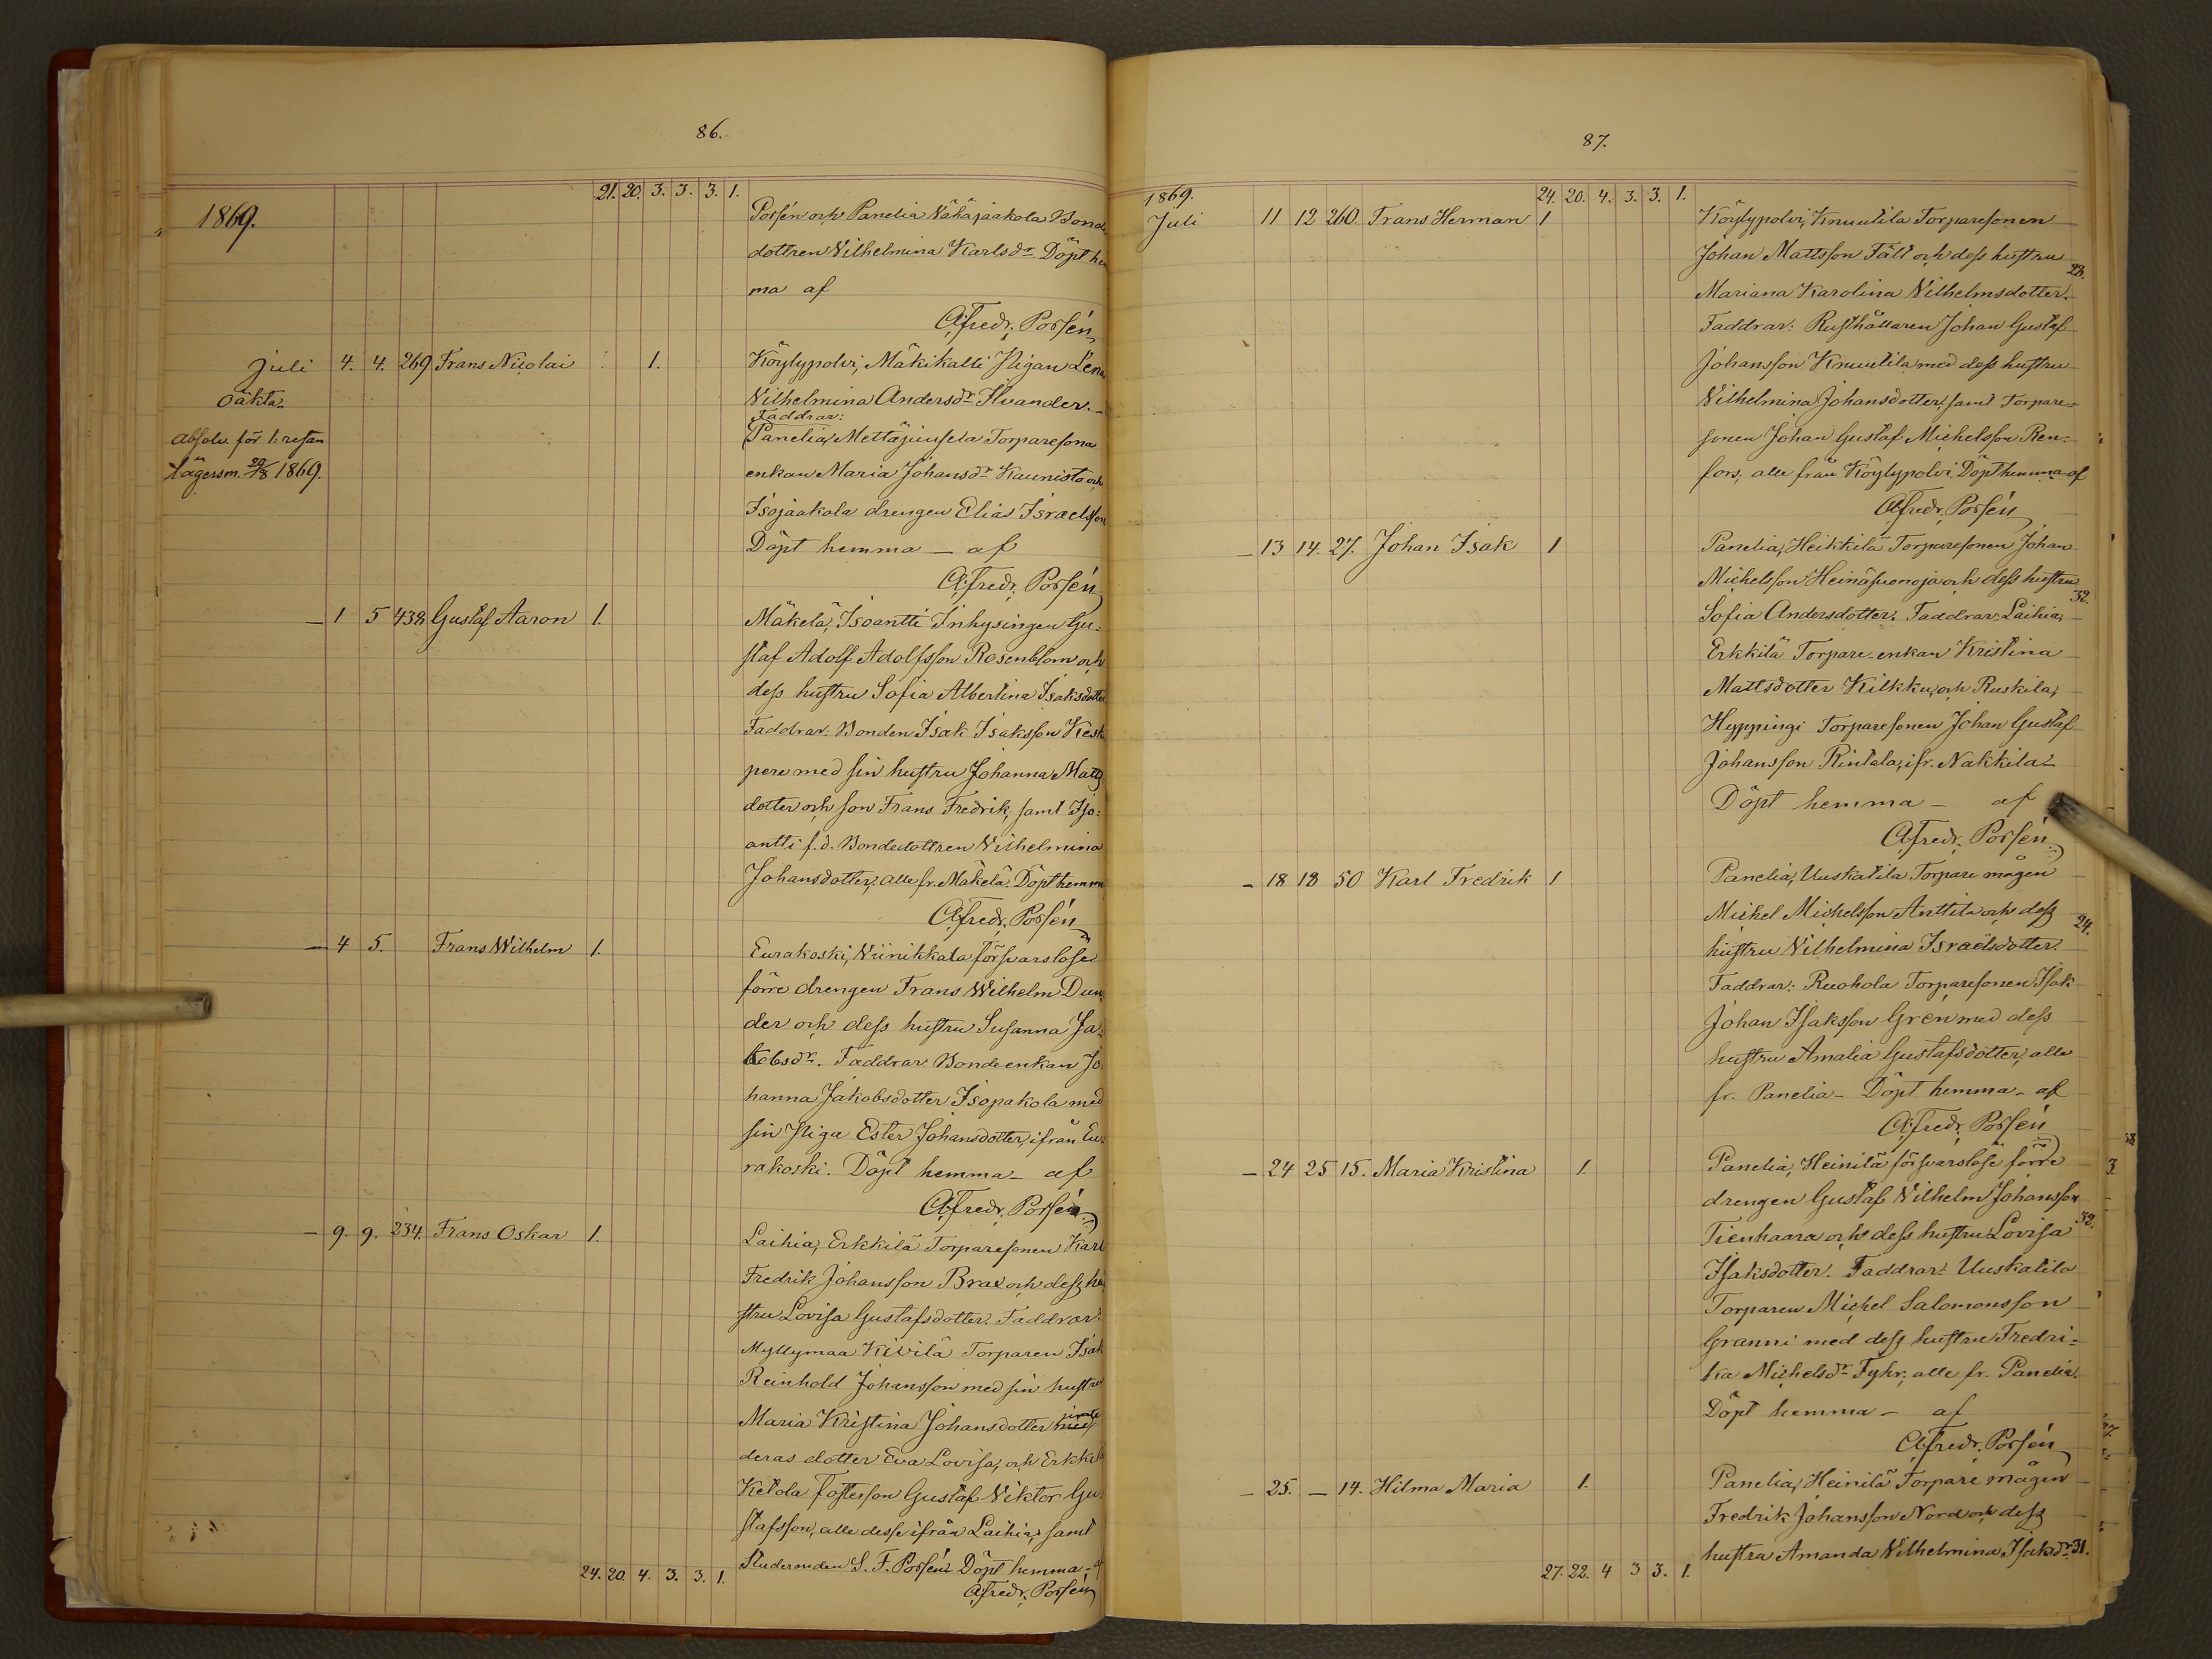 86.
21. 20. 3. 3. 3. 1.
1869.
Porsén och Panelia Vähäjaakola Bonde
dottren Vilhelmina Karlsdr. Döpt hem
ma af
Afredr. Porsén
Juli 4. 4. 269 Frans Nicolai 1. Köylypolvi, Mäkikalli Pigan Lena
oäkta Vilhelmina Andersdr Ilvander.
Faddrar:
absolv. för 1:resan Panelia, Mettäjiusela Torparesona
lägersm. 29/8 1869. enkan Maria Johansdr Kaunisto och
Isojaakola drengen Elias Israelsson
Döpt hemma — af
Afredr. Porsén
— 1 5 432 Gustaf Aaron 1. Mäkelä, Isoantti Inhysingen Gu=
staf Adolf Adolfsson Rosenblom och
dess hustru Sofia Albertina Isaksdotter
Faddrar: Bonden Isak Isaksson Kesk
pere med sin hustru Johanna Matts
dotter och son Frans Fredrik, samt Iso=
antti f.d. Bondedottren Vilhelmina
Johansdotter, alle fr. Mäkelä. Döpt hemma
Afredr. Porsén
— 4 5. Frans Wilhelm 1. Eurakoski, Viinikkala försvarslöse
förre drengen Frans Wilhelm Dun
der och dess hustru Susanna Ja=
kobsdr. Faddrar Bonde enkan Jo
hanna Jakobsdotter Isopakola med
sin Piga Ester Johansdotter, ifrån Eu
rakoski. Döpt hemma — af
Afredr. Porsén
— 9. 9. 234. Frans Oskar 1. Laihia, Erkkilä Torparesonen Karl
Fredrik Johansson Brax och dess hu
stru Lovisa Gustafsdotter. Faddrar:
Myllymaa Kivilä Torparen Isak
Reinhold Johansson med sin hustru
jemte
Maria Kristina Johansdotter med
deras dotter Eva Lovisa, och Erkkilä
Ketola fosterson Gustaf Viktor Gu
stafsson, alle desse ifrån Laihia, samt
Studeranden S. F. Porsén Döpt hemma — af
24. 20. 4. 3. 3. 1.
Afredr. Porsén
87.
1869. 24. 20. 4. 3. 3. 1.
Juli 11 12 260 Frans Herman 1 Köylypolvi, Knuutila Torparesonen
Johan Mattsson Fält och dess hustru
28.
Mariana Karolina Vilhelmsdotter.
Faddrar: Rusthållaren Johan Gustaf
Johansson Knuutila med dess hustru
Vilhelmina Johansdotter, samt Torpare=
sonen Johan Gustaf Michelsson Ren=
fors, alle från Köylypolvi Döpt hemma af
Afredr. Porsén
— 13 14. 27. Johan Isak 1 Panelia, Heikkilä Torparesonen Johan
Michelsson Heinäsuonoja och dess hustru
32.
Sofia Andersdotter. Faddrar: Laihia,
Erkkilä Torpare-enkan Kristina
Mattsdotter Kilkku, och Ruskila,
Hyppingi Torparesonen Johan Gustaf
Johansson Rintala, ifr. Nakkila
Döpt hemma — af
Afredr. Porsén
— 18 18 50 Karl Fredrik 1 Panelia, Uuskatila Torpare mågen
Michel Michelsson Anttila och dess 24.
hustru Vilhelmina Israelsdotter.
Faddrar: Ruohola Torparesonen Isak
Johan Isaksson Grén med dess
hustru Amalia Gustafsdotter, alle
fr. Panelia — Döpt hemma — af
Afredr. Porsén
— 24 25 15. Maria Kristina 1. Panelia, Heinilä försvarslöse förre
drengen Gustaf Vilhelm Johansson
Tienhaara och dess hustru Lovisa 32.
Isaksdotter. Faddrar: Uuskatila
Torparen Michel Salomonsson
Granni med dess hustru Fredri=
ka Michelsdr Fyhr, alle fr. Panelia.
Döpt hemma — af
Afredr. Porsén
— 25. — 14. Hilma Maria 1. Panelia, Heinilä Torpare mågen
Fredrik Johansson Nord och dess
hustru Amanda Vilhelmina Isaksdr 31.
27. 22. 4 3 3. 1.